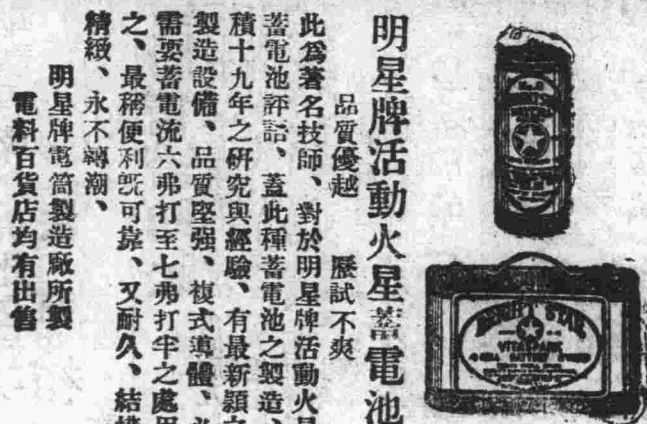 明星牌活動火星蓄電池
品質優越 歷試不爽
此為著名技師、對於明星牌活動火星
蓄電池評語、蓋此種蓄電池之製造、
積十九年之硏究與經驗、有最新穎之
製造設備、品質堅强、複式導體、
需要蓄電流六弗打至七弗打半之處用
之、最稱便利旣可靠、又耐久、結構
精緻、永不轉潮、
明星牌電筒製造廠所製
電料百貨店均有出售
BRIGHT STAR